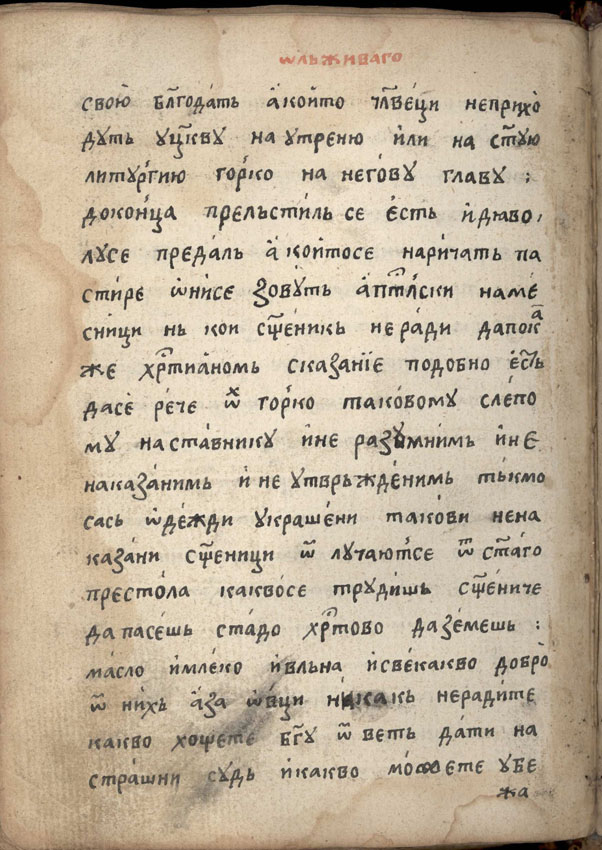 ѡльживаго
свою̀ бл҃года́ть а҆ кои́то чл҃ве́ци неприхо
дуть уцр҃кву на утреню и҆ли на ст҃ую
литургі́ю го́рко на него́ву главу :
доконца прельстиль се е҆сть и҆ дїаво,
лусе предаль а҆ кои́тосе наричать па
стире ѡ҆нисе зову́ть а҆пⷭ҇тлски наме
сници нь кои сщ҃еникь неради да покаⷤ
же хрⷭ҇тиа́номь сказанїе подобно е҆сⷮь
дасѐ рече ѽ го́рко тако́вому слѣпо
му наста́внику и҆не разу́мнимь и҆не
наказа́нимь и҆ не утврьжде́нимь тькмо
сась ѡ҆де́жди украшени тако́ви нена
каза́ни сщ҃еници ѿ лучаю́тсе ѿ ст҃а́го
престо́ла какво́се трудишь сщ҃е́ниче
да пасе́шь ста́до хрⷭ҇тово да зе́мешь :
ма́сло и҆ мле́ко и҆ вльна и҆ све́какво добро̀
ѿ нихь а҆ за ѡ҆́вци никакь нерадите
какво хощете бг҃у ѿветь да́ти на
стра́шни судь и҆какво мо́жете убе
жа